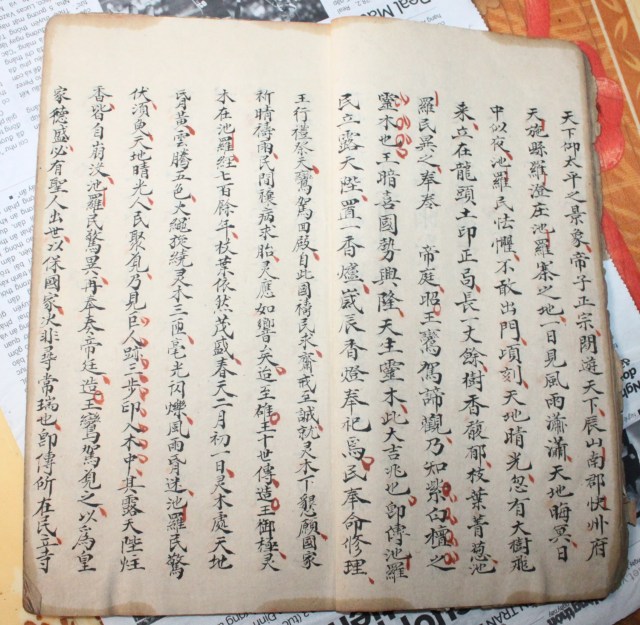 天下仰太平之景象帝子正宗閒遊天下辰山南郡快州府
天施縣羅澄庄池羅寨之地一日見風雨瀟瀟天地晦冥日
中似夜池羅民怯懼不敢出門頃刻天地晴光忽有大樹飛
來立在龍頭土印正局長一丈餘樹香馥郁枝葉菁葱池
羅民異之奉奏 帝庭昭王鸞駕諦觀乃知紫白檀之
靈木也王暗喜國勢興隆天生靈木此大吉兆也卽傳池羅
民立露天陛置一香爐歲辰香燈奉祀焉民奉命修理
王行禮祭天鸞駕回殿自此國禱民求齋戒至誠就灵木下懇願國家
祈晴禱雨民間穰病求胎灵應如響矣迨主雄王十世傳造王御極灵
木在池羅經七百餘年枝葉依然茂盛春天一月初一日灵木處天地
昏黃雲騰五色大繩挺繞灵木三匝毫光閃爍風雨昏迷池羅民驚
伏須臾天地晴光人民聚覓乃見巨人跡三步印入木中其露天陛炷
香皆自崩沒池羅民驚異再奉奏帝廷造王鸞駕覓之以爲皇
家德盛必有聖人出世以保國家决非尋常瑞也卽傳所在民立寺
Real Ma